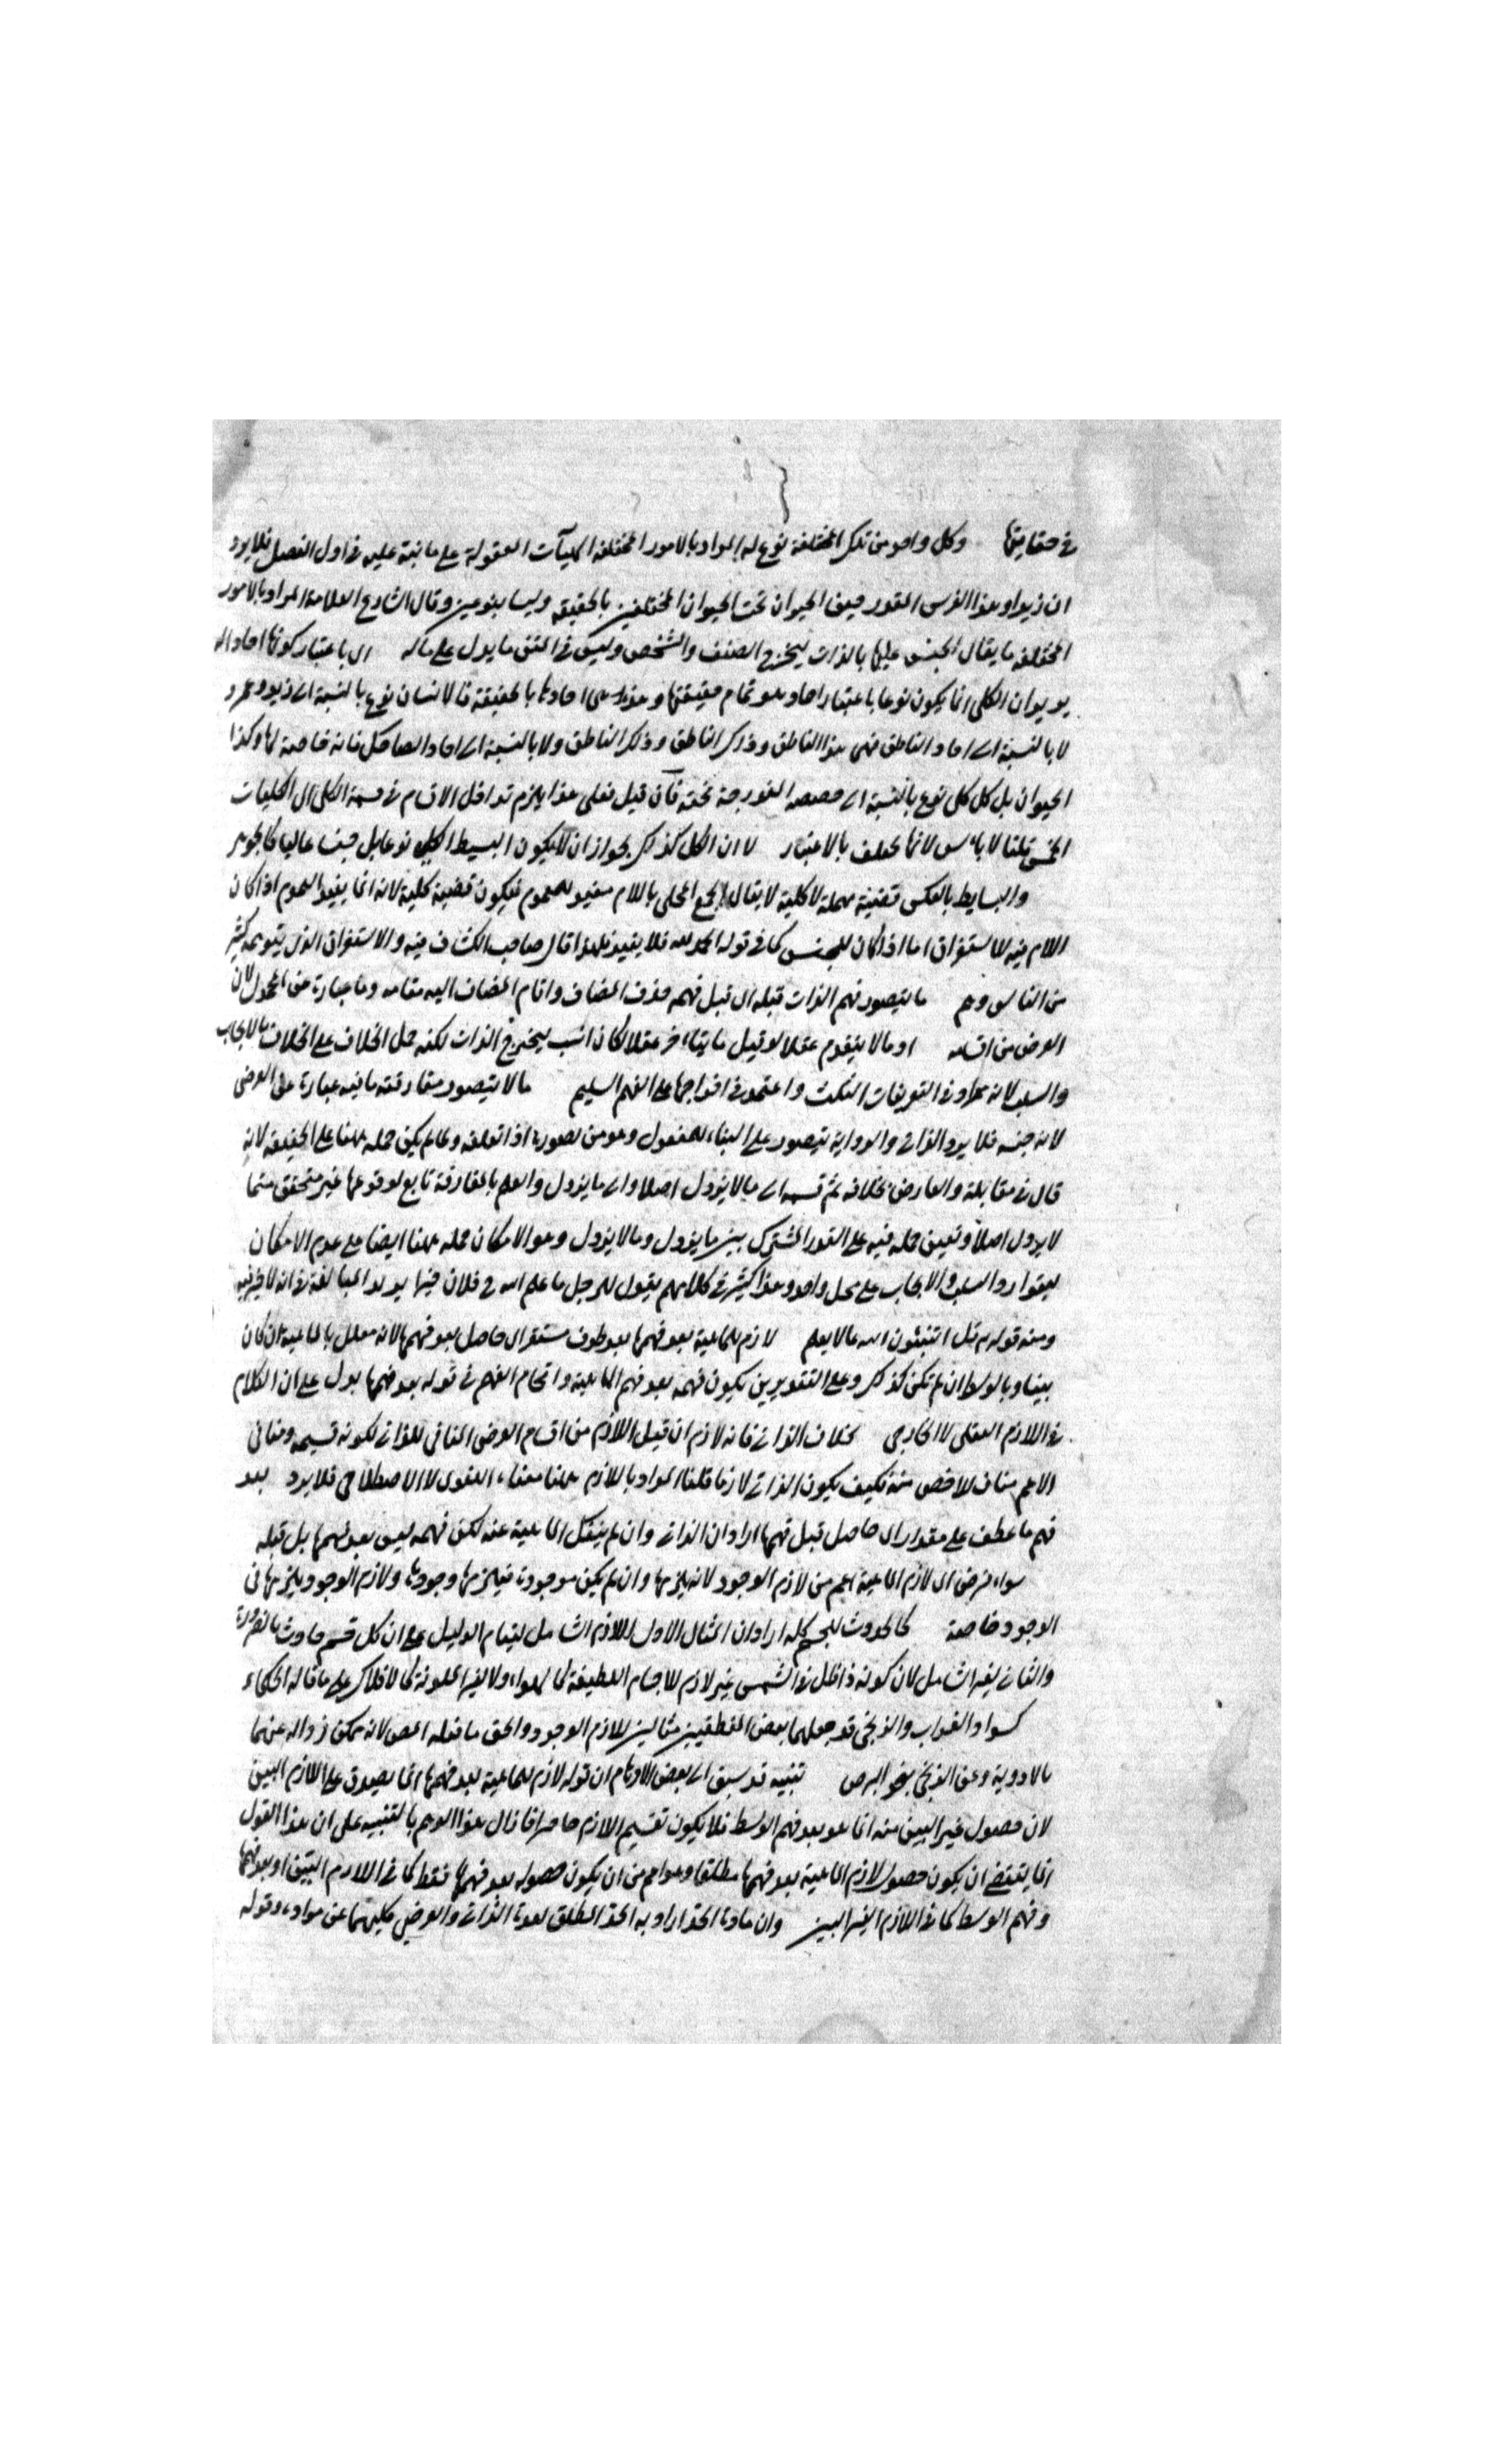 في حقايقها وكل واحد من تلك المختلفة نوع له المراد بالامور المختلفة الماهيات المعقولة على ما نبه عليه في اول الفصل فلا يرد
ان زيدا وهذا الفرس المقدر فيهما الحيوان تحت الحيوان المختلفين بالحقيقة وليسا بنوعين وقال الشارح العلامة المراد بالامور
المختلفة ما يقال الجنس عليها بالذات ليخرج الصنف والشخص وليس في المتن ما يدل على ماله اي باعتبار كونها احاد اله
يريد ان الكلي انما يكون نوعا باعتبار احاد هو تمام حقيقتها وهذه هي احادها بالحقيقة فالانسان نوع بالنسبة الى زيد وعمرو
لا بالنسبة الى احاد الناطق فهي هذا الناطق وذلك الناطق وذلك الناطق ولا بالنسبة الى احاد الضاحك فانه خاصة لها وكذا
الحيوان بل كل كلي نوع بالنسبة الى حصصه المندرجة تحته فان قيل فعلى هذا يلزم تداخل الاقسام في قسمة الكلي الى الكليات
الخمس قلنا لا باس لانها تختلف بالاعتبار لا ان الكل كذلك بجواز ان لا يكون البسيط الكلي نوعا بل جنسا عاليا كالجوهر
والبسايط بالعكس قضية مهملة لا كلية لا يقال الجمع المحلى باللام مفيد للعموم فيكون قضية كلية لانه انما يفيد العموم اذا كان
اللام فيه للاستغراق اما اذا كان للجنس كما في قوله الحمد لله فلا يفيد فلهذا قال صاحب الكشاف فيه والاستغراق الذي يتوهمه كثير
من الناس وهم ما لا يتصور فهم الذات قبله اي قبل فهمه حذف المضاف واقام المضاف اليه مقامه وما عبارة عن المحمول لان
العرض من اقسامه او ما لا يتقدم عقلا لو قيل ما يتاخر عقلا لكان انسب ليخرج الذات لكنه حمل الخلاف على الخلاف بالايجاب
والسلب لانه يراد في التعريفات النكت واعتمد في اخراجها على الفهم السليم ما لا يتصور مفارقته ما فيه عبارة عن العرضي
لانه جنسه فلا يرد الذاتي والرواية يتصور على البناء للمفعول وهو من تصوره اذا تعلقه ولما لم يكن حمله ههنا على الحقيقة لانه
قال في مقابلة والعارض بخلافه ثم قسمه الى ما لا يزول اصلا والى ما يزول والعلم بالمفارقة تابع لوقوعها غير متحقق فيما
لا يزول اصلا وتعين حمله فيه على القدر المشترك بين ما يزول وما لا يزول وهو الامكان حمله ههنا ايضا على عدم الامكان
ليتوارد السلب والايجاب على محل واحد وهذا كثير في كلامهم يقول الرجل ما علم الله في فلان خيرا يريد المبالغة في انه لا خير فيه
ومنه قوله قل اتنبئون الله بما لا يعلم لازم للماهية بعد فهمها بعد ظرف مستقر اي حاصل بعد فهمها لانه معلل بالماهية ان كان
بينا وبالوسط ان لم يكن كذلك وعلى التقديرين يكون فهمه بعد فهم الماهية واقحام الفهم في قوله بعد فهمها يدل على ان الكلام
في اللازم العقلي لا الخارجي بخلاف الذاتي فانه لازم ان قيل اللازم من اقسام العرضي المنافي للذاتي لكونه قسيمه ومنافي
الاعم مناف للاخص منه فكيف يكون الذاتي لازما قلنا المراد باللازم ههنا معناه اللغوي لا الاصطلاحي فلا يرد بعد
فهم ما عطف على مقدر اي حاصل قبل فهمها اراد ان الذاتي وان لم ينفك الماهية عنه لكن فهمه ليس بعد فهمها بل قبله
سواء فرض اي لازم الماهية اعم من لازم الوجود لانه يلزمها وان لم يكن موجودة فيلزمها وجودها ولازم الوجود يلزمها في
الوجود خاصة كالحدوث للجسم كله اراد ان المثال الاول اللازم الشامل لتمام الدليل على ان كل جسم حادث بالضرورة
والثاني لغير الشامل لان كونه ذا ظل في الشمس غير لازم للاجسام اللطيفة كالهواء ولا لغير الملونة كالافلاك على ما قاله الحكماء
كسواد الغراب والزنجي قد جعلهما بعض المنطقيين مثالين للازم الوجود والحق ما فعله المص لانه ممكن زواله عنهما
بالادوية وعن الزنجي بنحو البرص تنبيه قد سبق الى بعض الاوهام ان قوله لازم للماهية بعد فهمها انما يصدق على اللازم البين
لان حصول غير البين منه انما هو بعد فهم الوسط فلا يكون تقسيم اللازم حاصرا فازال هذا الوهم بالتنبيه على ان هذا القول
انما يقتضي ان يكون حصول لازم الماهية بعد فهمها مطلقا وهو اعم من ان يكون حصوله بعد فهمها فقط كما في اللازم البين او بعد فهمها
وفهم الوسط كما في اللازم الغير البين وان مادة الحد اراد به الحد المطلق لعدة الذاتي والعرضي كليهما عن مواده وقوله